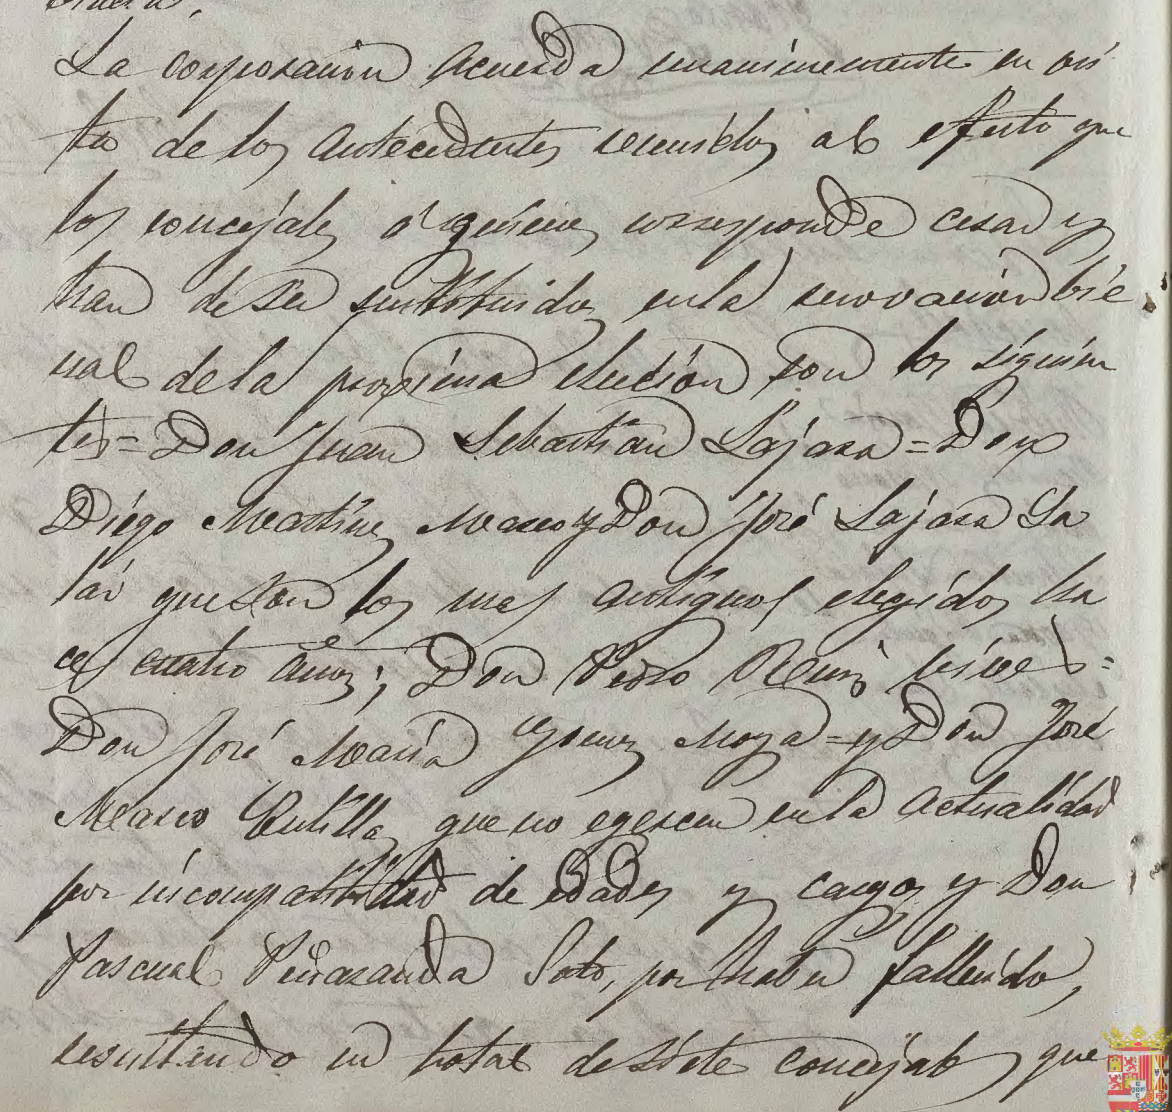 La corporación acuerda unanimemente en vis
ta de los antecedentes reunidos al efecto que
los concejales á quienes corresponde cesar y
han de ser sustituidos en la renovación bie
nal de la proxima elección son los siguien
tes = Don Juan Sebastian Lajara = Don
Diego Martinez Marco y Don José Lajara Ya
lar que son los mas antiguos elegidos ha
ce cuatro años; Don Pedro Ruiz =
Don José María Gomez Moya = y Don José
Marco Rubilla, que no egercen en la actualidad
por incompatibilidad de edades y cargos y Don
Pascual Peñaranda Soto, por haber fallecido,
resultando un total de siete concejales que